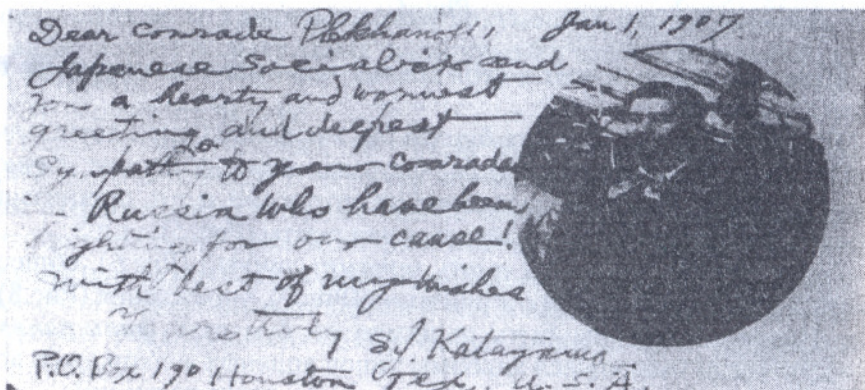 Dear comrade Plekhanoff, Jan 1, 1907
Japanese Socialists send
you a hearty and warmest
greeting and deepest
Sympathy to your comrades
in Russia who have been
fighting for our cause!
With best of my wishes
Yours truly S.J. Katayama
P.O. Box 190 Houston Tex., U.S.A.